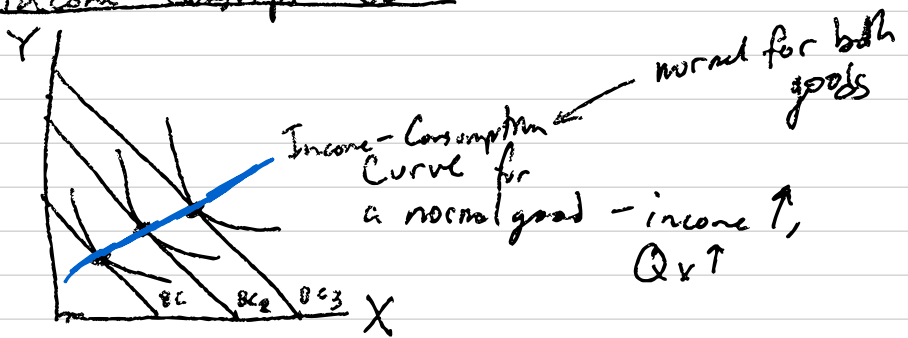 Y
normal for both
goods
Income-Consumption
Curve for
a normal good - income ↑,
Qx ↑
BC
BC2
BC3
X